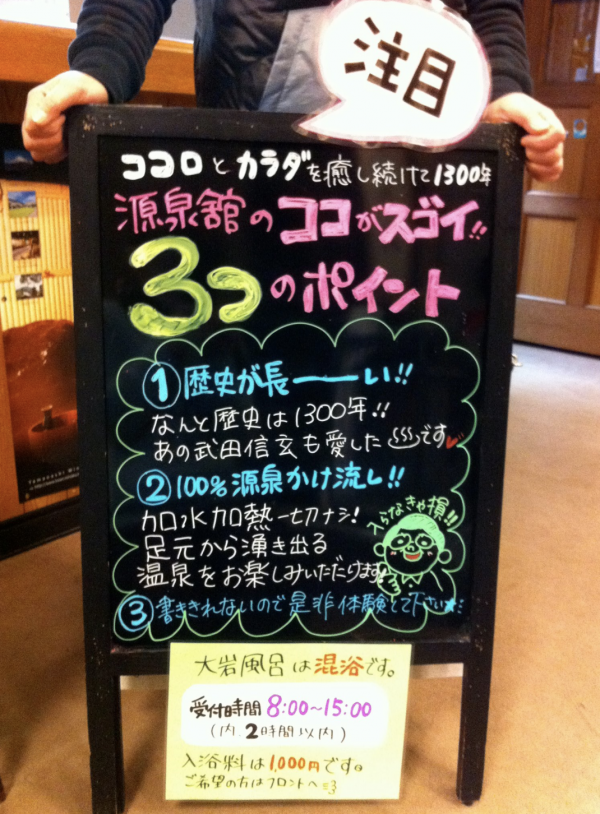 注目
ココロとカラダを癒し続けて1300年
源泉舘のココがスゴイ!!
3つのポイント
①歴史が長――い!!
なんと歴史は1300年!!
あの武田信玄も愛した♨です♥
②100%源泉かけ流し!!
加水加熱一切ナシ!
足元から湧き出る
温泉をお楽しみいただけます
入らなきゃ損!!
③書ききれないので是非体験して下さい★
大岩風呂は混浴です。
受付時間 8:00～15:00
(内、2時間以内)
入浴料は1,000円です。
ご希望の方はフロントへ